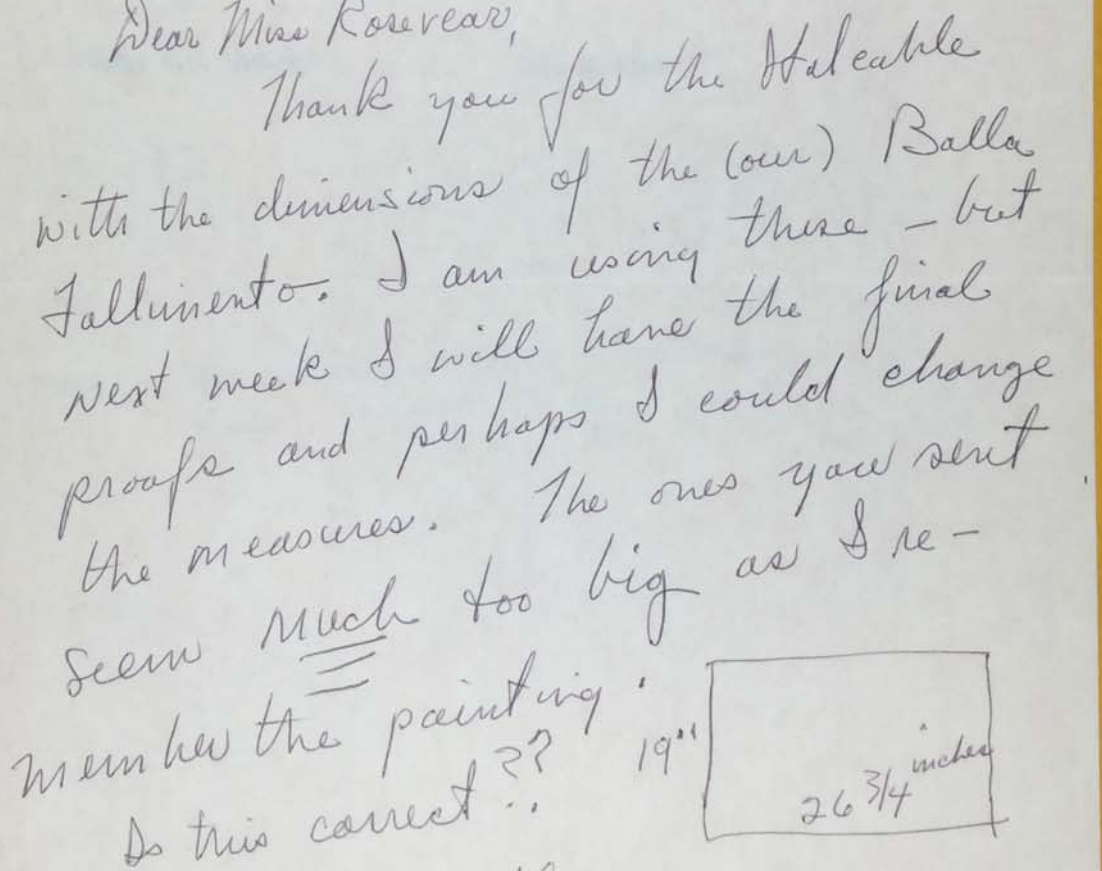 Dear Miss Rosevear,
Thank you for the Italcable
with the dimensions of the (our) Balla
Fallimento. I am using these – but
next week I will have the final
proofs and perhaps I could change
the measures. The ones you sent
seem much too big as I re-
member the painting.
Is this correct??
19"
26 3/4 inches